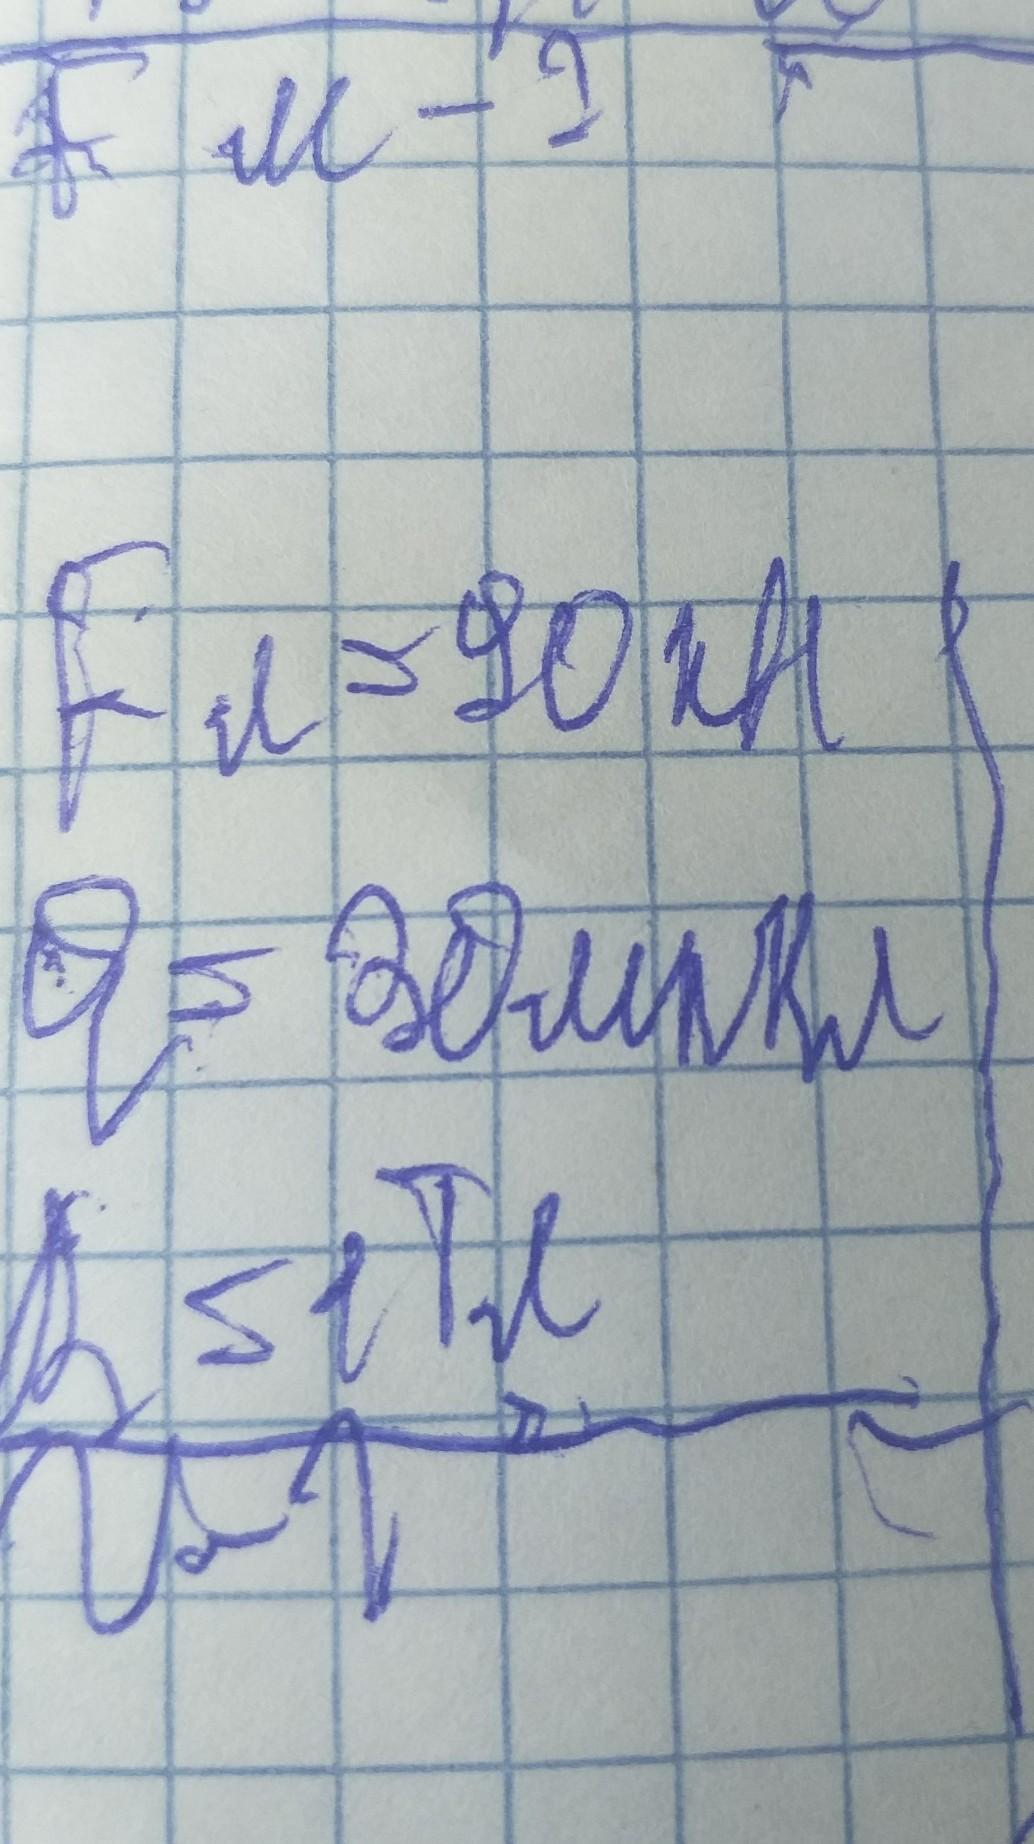 F м - ?
Fл = 90 кН
q = 30 мкКл
B = 1 Тл
V - ?